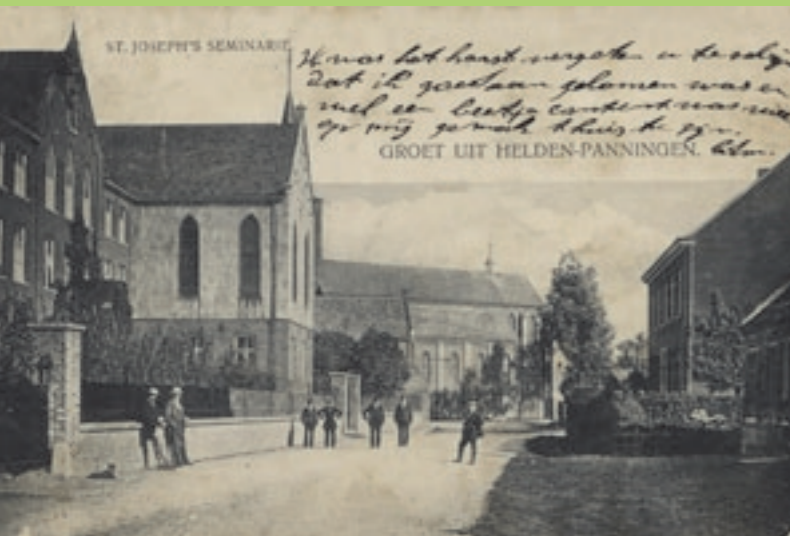 ST. JOSEPH'S SEMINARIE
was het haast vergeten u te
dat ik goed aan gekomen was en
wel een beetje content was
op mij gemak thuis te zijn.
GROET UIT HELDEN-PANNINGEN.